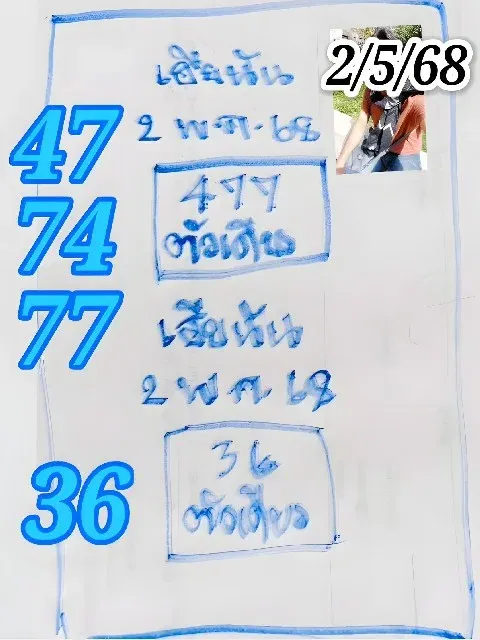 เฮียนัน
2/5/68
2 พ.ค. 68
47
477
ตัวเดียว
74
77
เฮียนัน
2 พ.ค. 68
36
36
ตัวเดียว